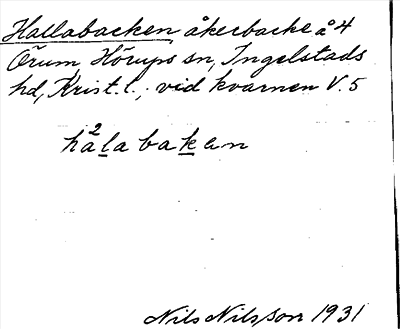 Hallabacken, åkerbacke å 4
Örum Hörups sn, Ingelstads
hd, Krist. l., vid kvarnen V. 5
ha²la bakan
Nils Nilsson 1931